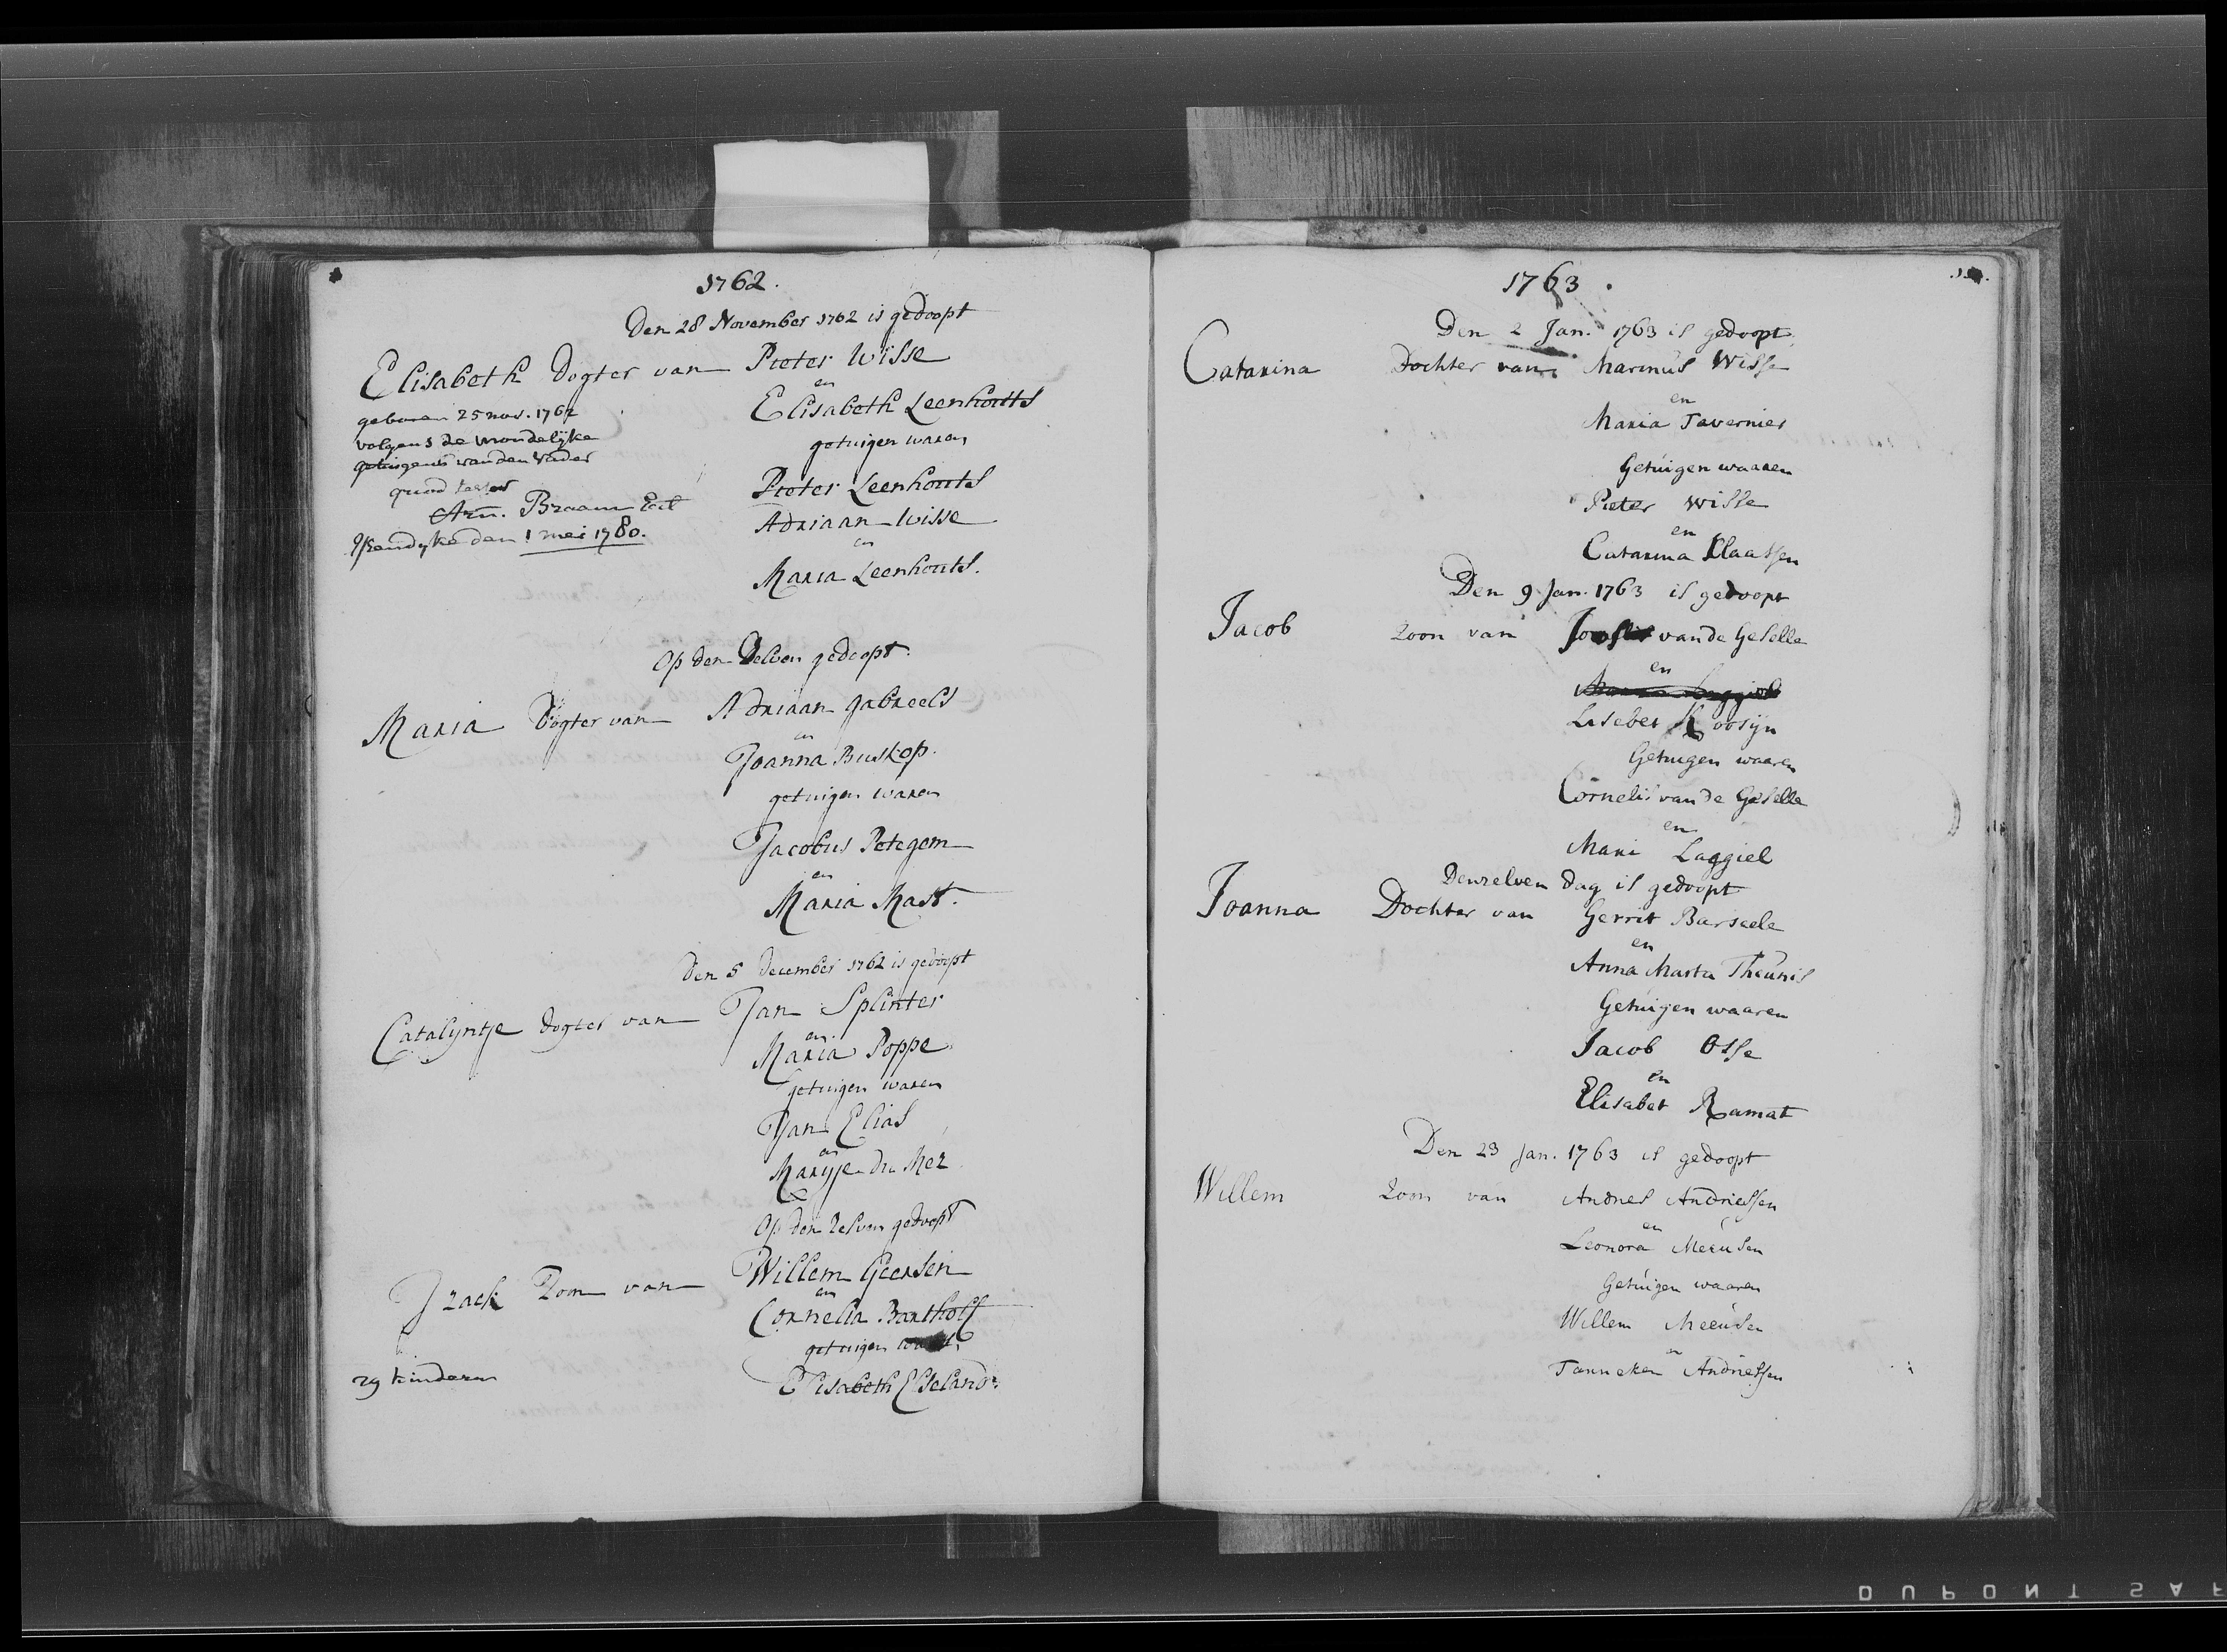 1762.
Den 28 November 1762 is gedoopt
Elisabeth dogter van Pieter Wisse
en
Elisabeth Leenhouts
getuigen waren
Pieter Leenhouts
Adriaan Wisse
en
Maria Leenhouts.
geboren 25 nov. 1762
volgens de mondelijke
getuigenis van den Vader
quod testor
Arn. Braam Eccl
IJsendyke den 1 mei 1780.
Op den Selven gedoopt.
Maria Dogter van Adriaan Gabreels
en
Joanna Buskop.
getuigen waren
Jacobus Petegem
en
Maria Mast.
den 5 december 1762 is gedoopt
Catalyntje dogter van Jan Splinter
en
Maria Poppe
getuigen waren
Jan Elias
en
Marytje du Mez
Op den zelven gedoopt
Izack Zoon van Willem Geersen
en
Cornelia Bartholf
getuigen
Elisabeth Elseland.
29 kinderen
1763.
Den 2 Jan. 1763 is gedoopt
Catarina Dochter van Marinus Wisse
en
Maria Tavernier
Getuigen waaren
Pieter Wisse
en
Catarina Klaassen
Den 9 Jan. 1763 is gedoopt
Jacob Zoon van van de Geselle
en
Lisebet
Getuigen waaren
Cornelis van de Geselle
en
Mari Laggiel
Denzelven dag is gedoopt
Joanna Dochter van Gerrit Barseele
en
Anna Maria Theunis
Getuigen waaren
Jacob Osse
en
Elisabet Ramat
Den 23 Jan. 1763 is gedoopt
Willem Zoon van Andries Andriessen
en
Leonora Meeusen
Getuigen waaren
Willem Meeusen
en
Tanneken Andriessen
DUPONT SAF